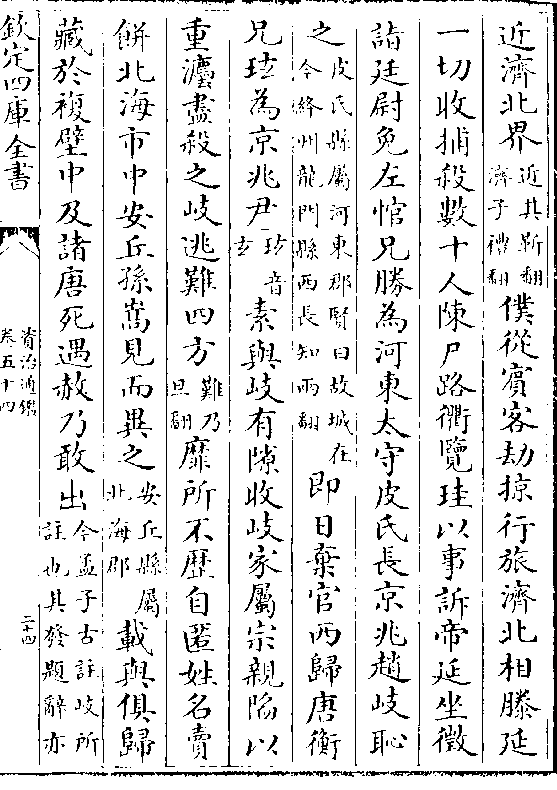 近濟北界近其靳翻濟子禮翻僕從賓客劫掠行旅濟北相滕延
一切收捕殺數十人陳尸路衢覽珪以事訴帝延坐徵
詣廷尉免左悺兄勝為河東太守皮氏長京兆趙岐恥
之皮氏縣屬河東郡賢曰故城在今絳州龍門縣西長知兩翻即日棄官西歸唐衡
兄玹為京兆尹玹音玄素與岐有隙收岐家屬宗親陷以
重灋盡殺之岐逃難四方難乃旦翻靡所不歷自匿姓名賣
餅北海市中安丘孫嵩見而異之安丘縣屬北海郡載與俱歸
藏於複壁中及諸唐死遇赦乃敢出今孟子古註岐所註也其發題辭亦
欽定四庫全書
資治通鑑
卷五十四
二十四